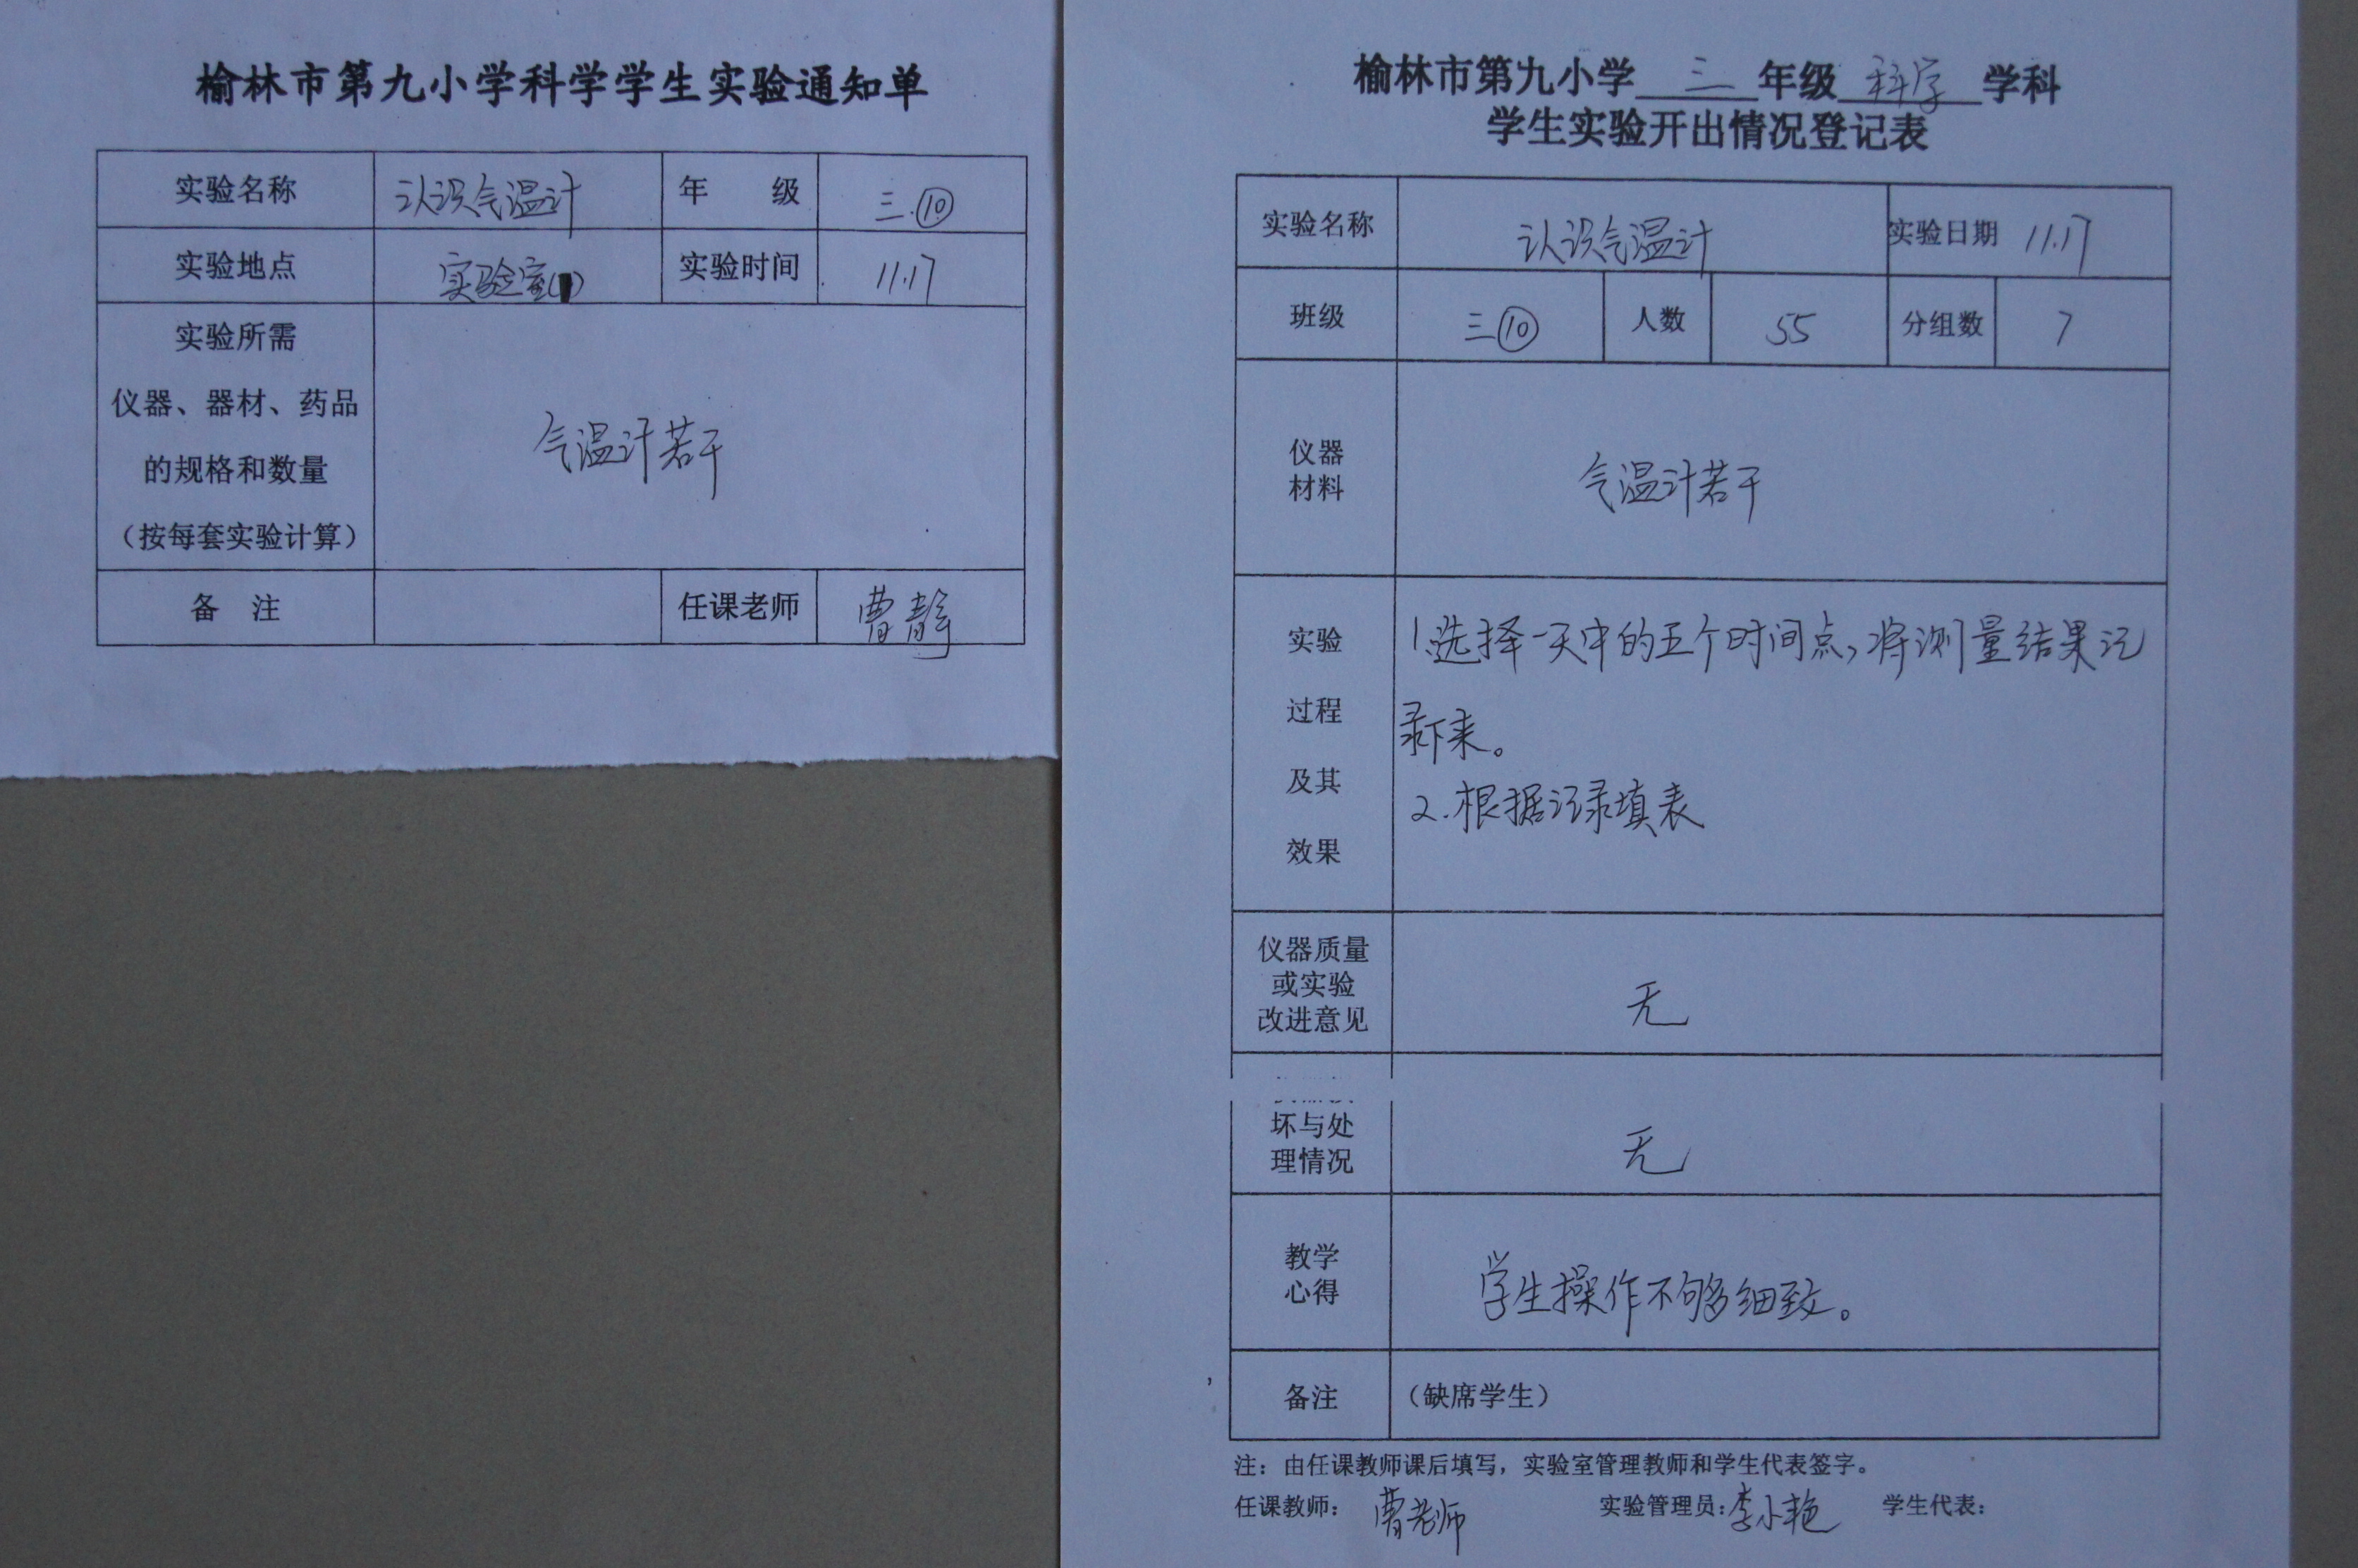 榆林市第九小学科学学生实验通知单
实验名称 认识气温计 年 级 三.⑩
实验地点 实验室 实验时间 11.17
实验所需
仪器、器材、药品
的规格和数量
（按每套实验计算）
气温计若干
备 注 任课老师 曹静
榆林市第九小学 三 年级 科学 学科
学生实验开出情况登记表
实验名称 认识气温计 实验日期 11.17
班级 三⑩ 人数 55 分组数 7
仪器
材料
气温计若干
实验
过程
及其
效果
1.选择一天中的五个时间点,将测量结果记
录下来。
2.根据记录填表
仪器质量
或实验
改进意见
无
坏与处
理情况
无
教学
心得
学生操作不够细致。
备注 （缺席学生）
注：由任课教师课后填写，实验室管理教师和学生代表签字。
任课教师： 曹老师 实验管理员：李小艳 学生代表：